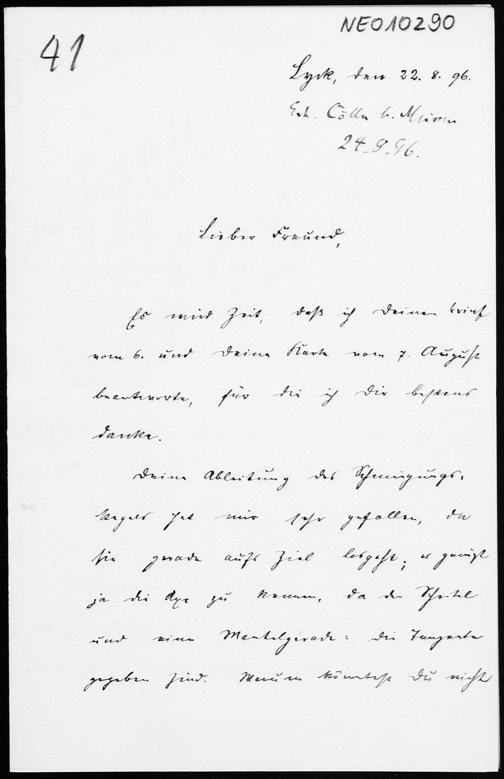 NEO10290
41
Lyck, den 22. 8. 96.
Erh. Cölln b. Meissen
24.8.96.
Lieber Freund,
Es wird Zeit, daß ich Deinen Brief
vom 6. und Deine Karte vom 7. August
beantworte, für die ich Dir bestens
danke.
Deine Ableitung des Schmiegungs-
kegels hat mir sehr gefallen, da
sie gerade aufs Ziel losgeht; es genügt
ja die Axe zu kennen, da der Scheitel
und eine Mantelgerade: die Tangente
gegeben sind. Warum könntest Du nicht